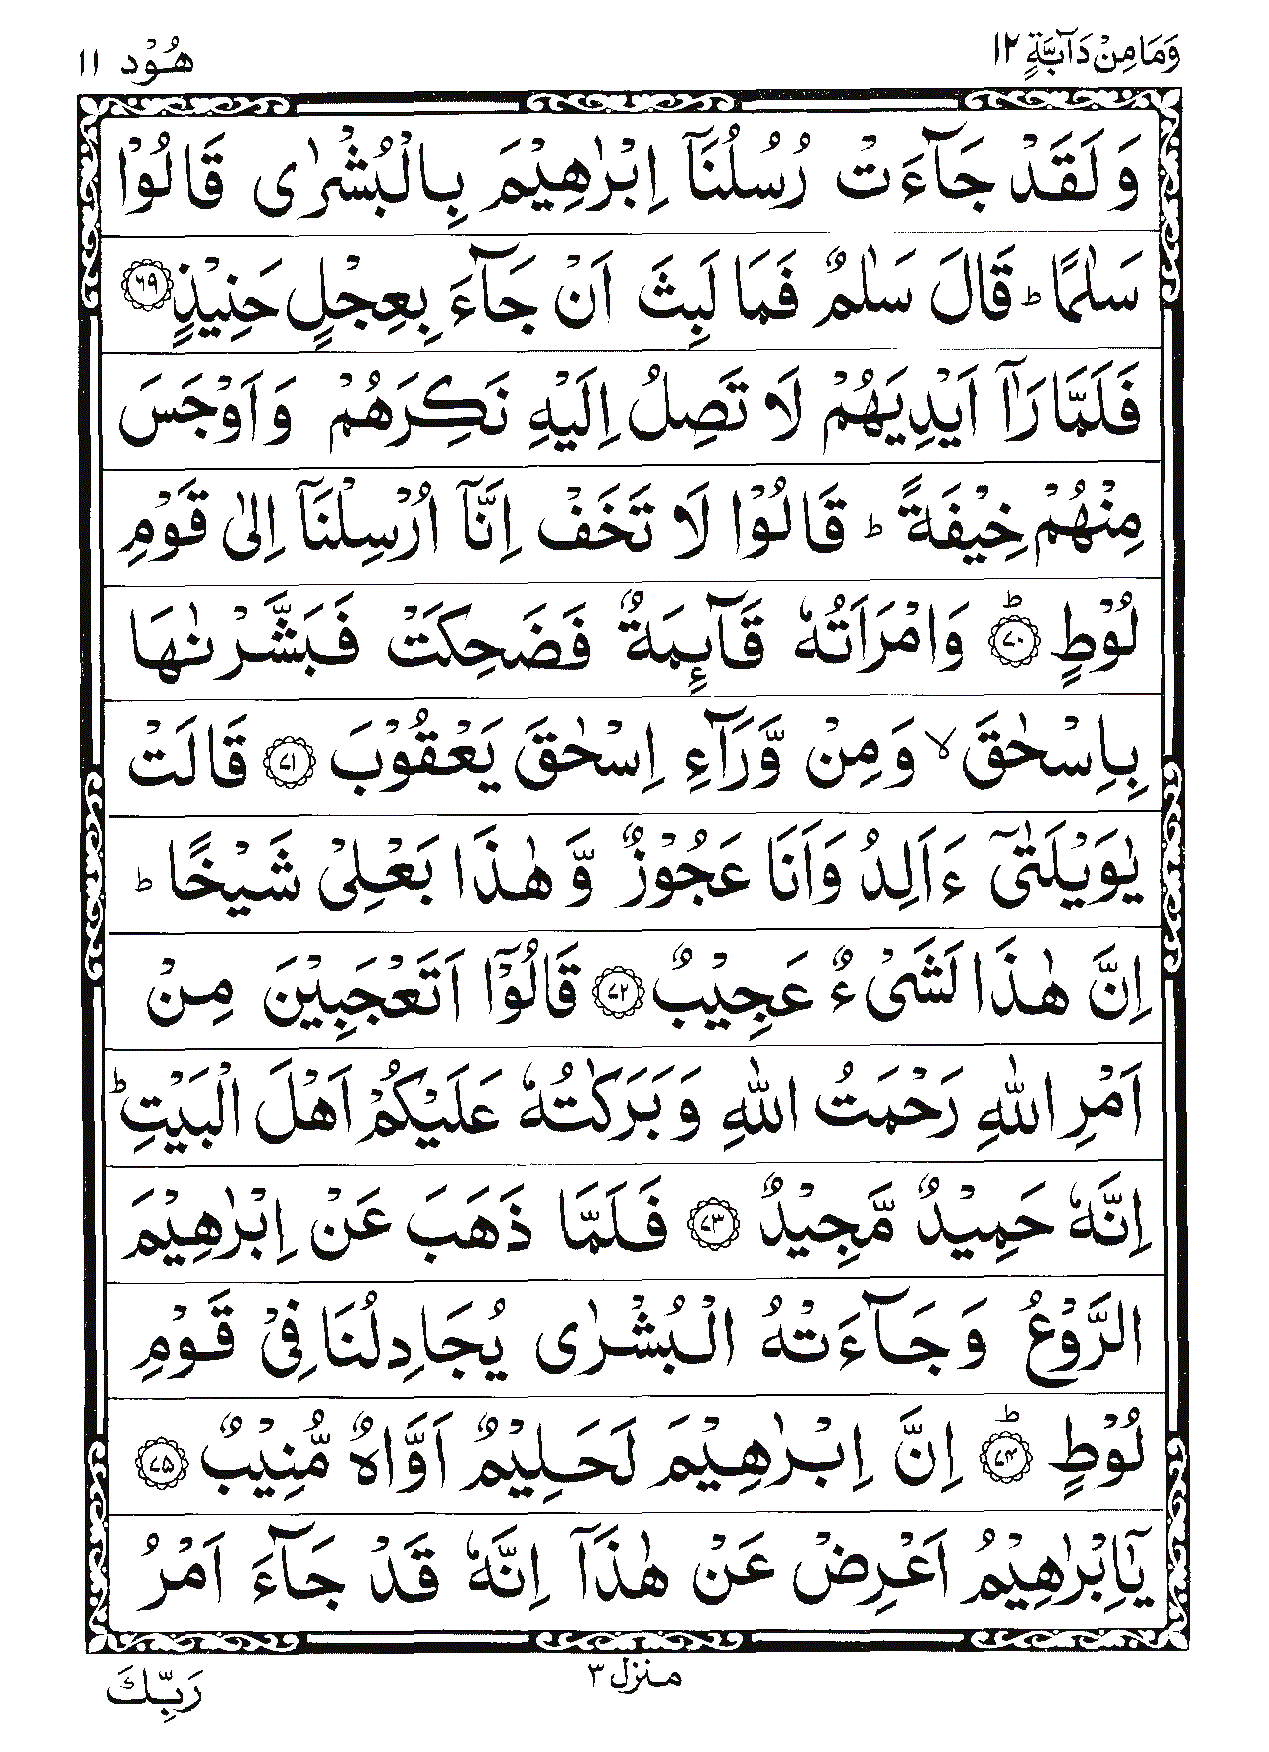 وَمَا مِنْ دَآبَّةٍ ١٢
هُوْد ١١
وَلَقَدْ جَآءَتْ رُسُلُنَآ اِبْرٰهِيْمَ بِالْبُشْرٰى قَالُوْا
سَلٰمًا ؕ قَالَ سَلٰمٌ فَمَا لَبِثَ اَنْ جَآءَ بِعِجْلٍ حَنِيْذٍ ۝۶۹
فَلَمَّا رَاٰۤ اَيْدِيَهُمْ لَا تَصِلُ اِلَيْهِ نَكِرَهُمْ وَاَوْجَسَ
مِنْهُمْ خِيْفَةً ؕ قَالُوْا لَا تَخَفْ اِنَّآ اُرْسِلْنَآ اِلٰى قَوْمِ
لُوْطٍ ؕ۝۷۰ وَامْرَاَتُهٗ قَآئِمَةٌ فَضَحِكَتْ فَبَشَّرْنٰهَا
بِاِسْحٰقَ ۙ وَمِنْ وَّرَآءِ اِسْحٰقَ يَعْقُوْبَ ۝۷۱ قَالَتْ
يٰوَيْلَتٰٓى ءَاَلِدُ وَاَنَا عَجُوْزٌ وَّهٰذَا بَعْلِيْ شَيْخًا ؕ
اِنَّ هٰذَا لَشَيْءٌ عَجِيْبٌ ۝۷۲ قَالُوْۤا اَتَعْجَبِيْنَ مِنْ
اَمْرِ اللّٰهِ رَحْمَتُ اللّٰهِ وَبَرَكٰتُهٗ عَلَيْكُمْ اَهْلَ الْبَيْتِ ؕ
اِنَّهٗ حَمِيْدٌ مَّجِيْدٌ ۝۷۳ فَلَمَّا ذَهَبَ عَنْ اِبْرٰهِيْمَ
الرَّوْعُ وَجَآءَتْهُ الْبُشْرٰى يُجَادِلُنَا فِيْ قَوْمِ
لُوْطٍ ؕ۝۷۴ اِنَّ اِبْرٰهِيْمَ لَحَلِيْمٌ اَوَّاهٌ مُّنِيْبٌ ۝۷۵
يٰٓاِبْرٰهِيْمُ اَعْرِضْ عَنْ هٰذَآ اِنَّهٗ قَدْ جَآءَ اَمْرُ
منزل ٣
رَبِّكَ